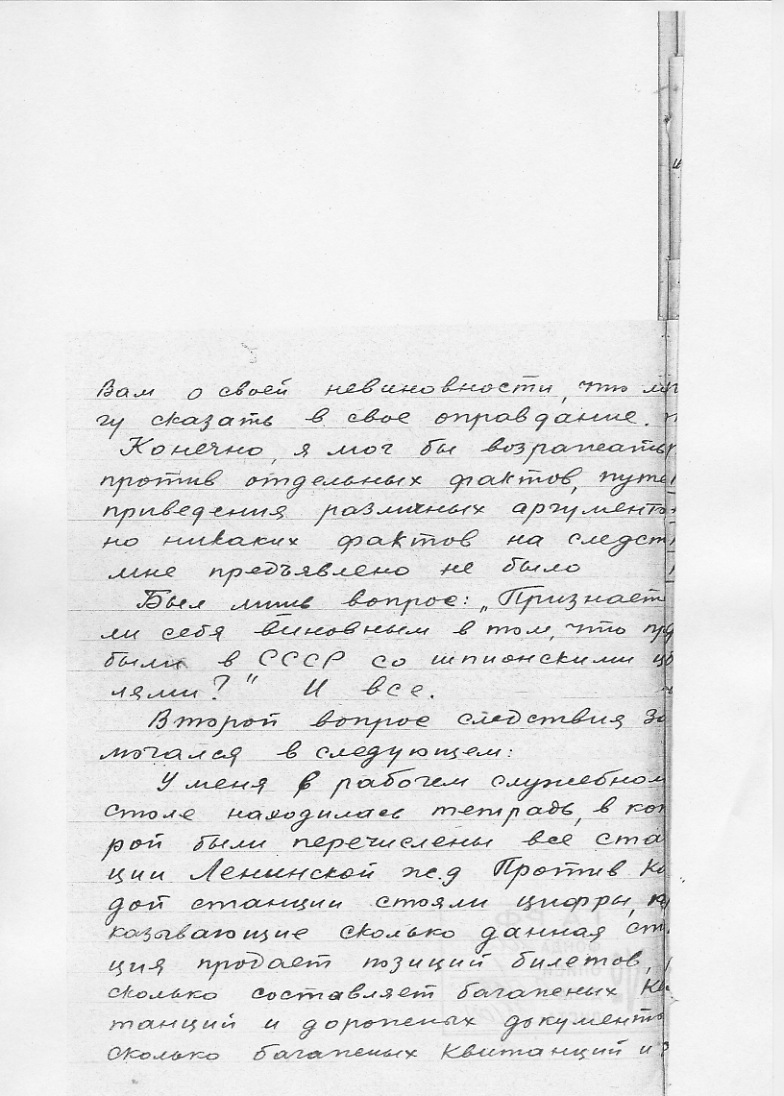 Вам о своей невиновности, что мо
гу сказать в свое оправдание.
Конечно, я мог бы возражать
против отдельных фактов, путе
приведения различных аргументо
но никаких фактов на следст
мне предъявлено не было
Был лишь вопрос: „Признает
ли себя виновным в том, что пр
были в СССР со шпионскими це
лями?" И все.
Второй вопрос следствия за
мочался в следующем:
У меня в рабочем служебном
столе находилась тетрадь, в кот
рой были перечислены все ста
ции Ленинской ж.д Против ка
дой станции стояли цифры, по
казывающие сколько данная ст
ция продает позиций билетов,
сколько составляет багажных кв
танций и дорожных документо
сколько багажных квитанций и
ГАРФ